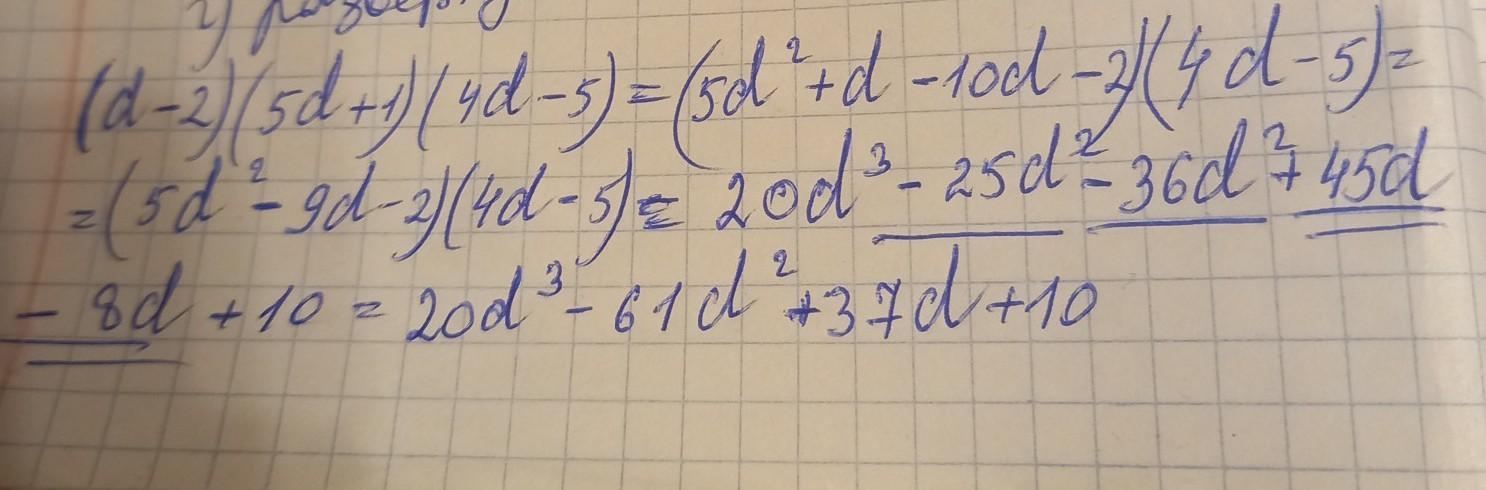 (d-2)(5d+1)(4d-5)=(5d²+d-10d-2)(4d-5)=
=(5d²-9d-2)(4d-5)= 20d³-25d²-36d²+45d
-8d+10=20d³-61d²+37d+10